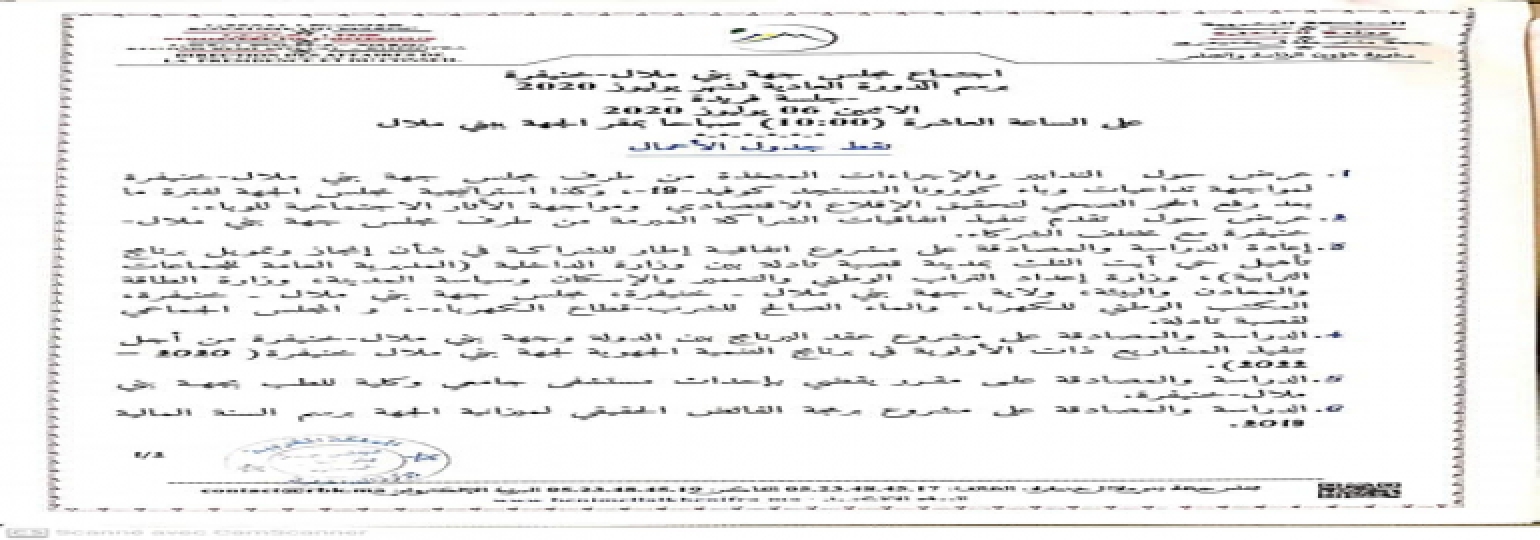 DIRECTION DES AFFAIRES DE
LA PRESIDENCE ET DU CONSEIL
المملكة المغربية
وزارة الداخلية
مديرية شؤون الرئاسة والمجلس
اجتماع مجلس جهة بني ملال-خنيفرة
برسم الدورة العادية لشهر يوليوز 2020
-جلسة فريدة -
الاثنين 06 يوليوز 2020
على الساعة العاشرة (10:00) صباحا بمقر الجهة ببني ملال
نقط جدول الأعمال
1. عرض حول التدابير والإجراءات المتخذة من طرف مجلس جهة بني ملال-خنيفرة
لمواجهة تداعيات وباء كورونا المستجد كوفيد-19-، وكذا استراتيجية مجلس الجهة لفترة ما
بعد رفع الحجر الصحي لتحقيق الإقلاع الاقتصادي ومواجهة الآثار الاجتماعية للوباء.
2. عرض حول تقدم تنفيذ اتفاقيات الشراكة المبرمة من طرف مجلس جهة بني ملال-
خنيفرة مع مختلف الشركاء.
3. إعادة الدراسة والمصادقة على مشروع اتفاقية إطار للشراكة في شأن إنجاز وتمويل برنامج
تأهيل حي أيت الثلث بمدينة قصبة تادلة بين وزارة الداخلية (المديرية العامة للجماعات
الترابية)، وزارة إعداد التراب الوطني والتعمير والإسكان وسياسة المدينة، وزارة الطاقة
والمعادن والبيئة، ولاية جهة بني ملال - خنيفرة، مجلس جهة بني ملال - خنيفرة،
المكتب الوطني للكهرباء والماء الصالح للشرب-قطاع الكهرباء-، و المجلس الجماعي
لقصبة تادلة.
4. الدراسة والمصادقة على مشروع عقد البرنامج بين الدولة وجهة بني ملال-خنيفرة من أجل
تنفيذ المشاريع ذات الأولوية في برنامج التنمية الجهوية لجهة بني ملال خنيفرة( 2020 –
2022).
5. الدراسة والمصادقة على مقرر يقضي بإحداث مستشفى جامعي وكلية للطب بجهة بني
ملال-خنيفرة.
6. الدراسة والمصادقة على مشروع برمجة الفائض الحقيقي لميزانية الجهة برسم السنة المالية
2019.
1/2
المملكة المغربية
الهاتف: 05.23.48.45.17 الفاكس 05.23.48.45.19 البريد الإلكتروني contact@rbk.ma
CS Scanné avec CamScanner